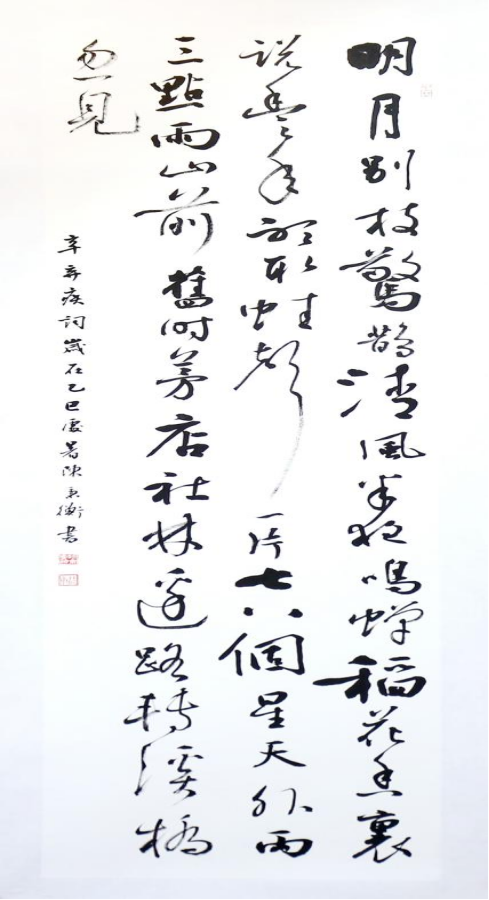 明月别枝驚鵲清風半夜鳴蟬稻花香裏
说豐年聽取蛙聲一片七八個星天外兩
三點雨山前舊時茅店社林邊路轉溪橋
忽見
辛弃疾詞歲在乙巳處暑陳秉衡書